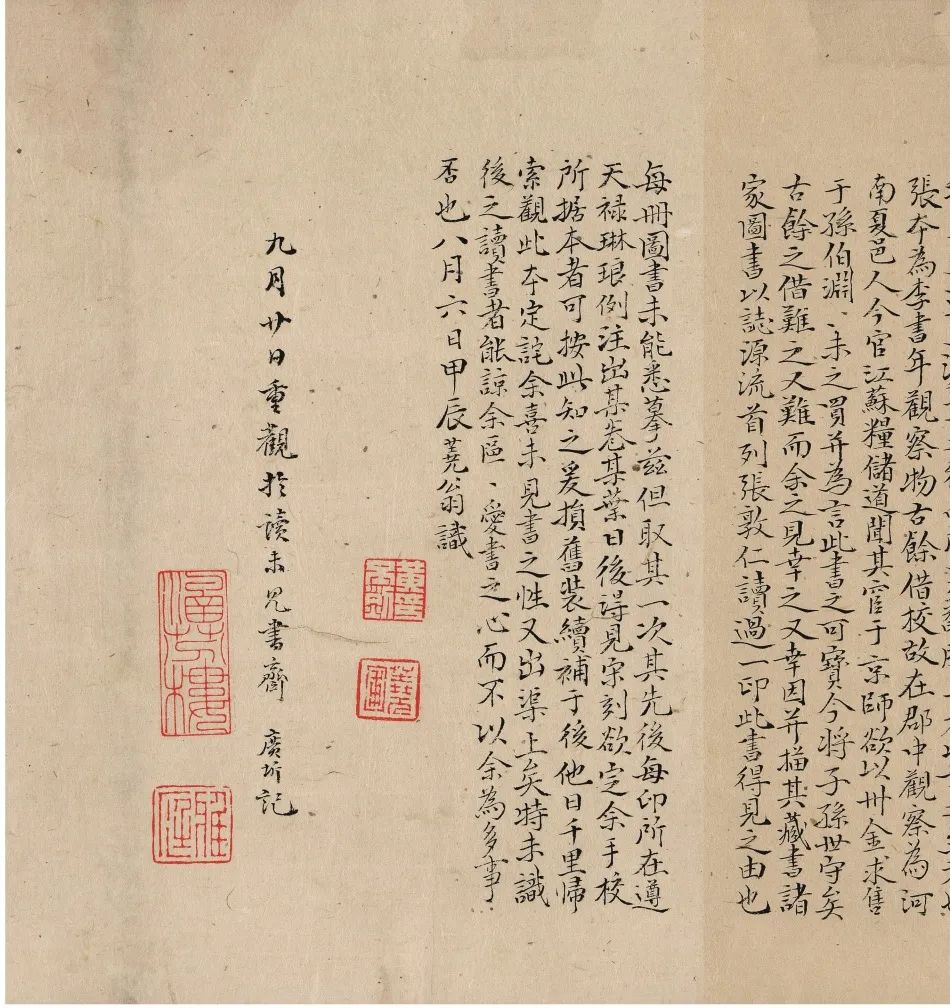 張本為李書年觀察物古餘借校故在郡中觀察為河
南夏邑人今官江蘇糧儲道聞其官于京師欲以卅金求售
于孫伯淵、未之買并為言此書之可寶今將子孫世守矣
古餘之借難之又難而余之見幸之又幸因并描其藏書諸
家圖書以誌源流首列張敦仁讀過一印此書得見之由也
每冊圖書未能悉摹茲但取其一次其先後每印所在遵
天祿琳琅例注出某卷某葉日後得見宋刻欲定余手校
所据本者可按此知之爰損舊裝續補于後他日千里歸
索觀此本定詫余喜未見書之性又出渠上矣特未識
後之讀書者能諒余區、愛書之心而不以余為多事
否也八月六日甲辰蕘翁識
九月廿日重觀於讀未見書齋 廣圻記